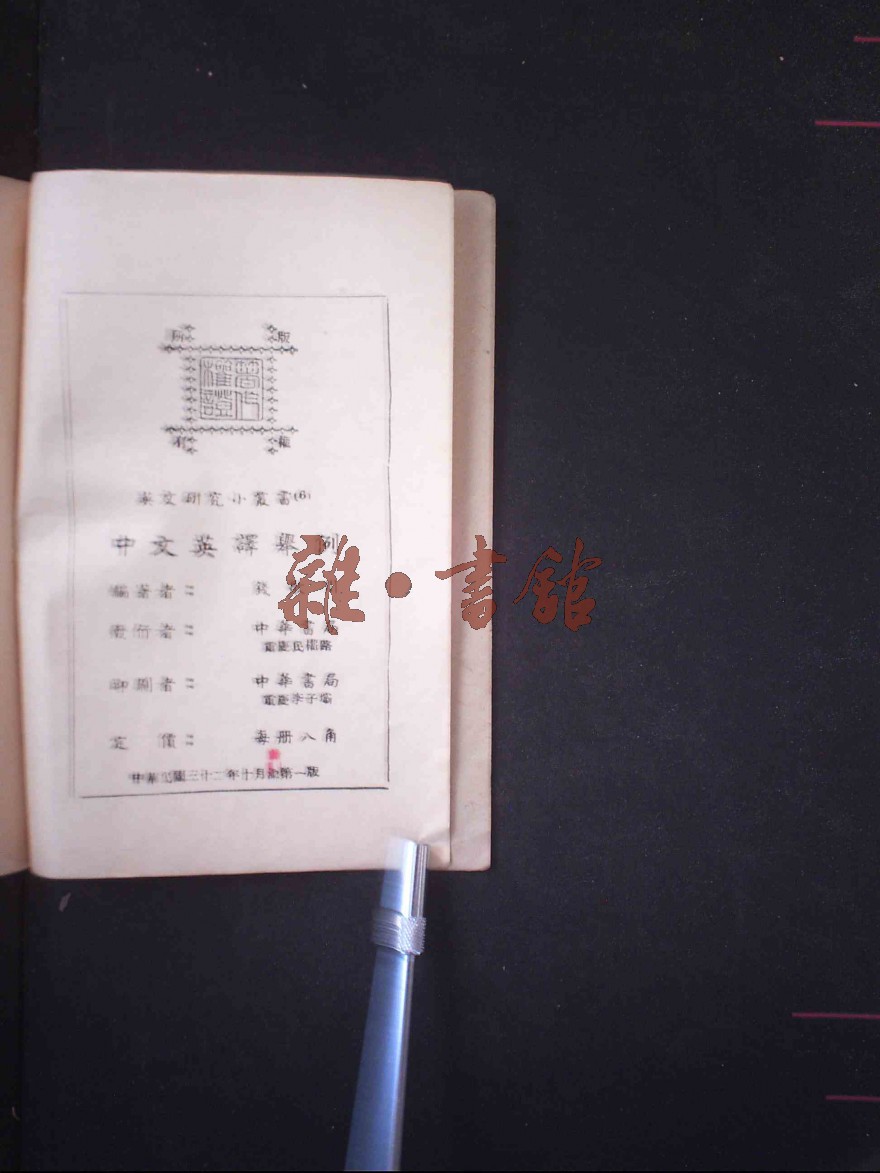 版權所有
著作權證
英文研究小叢書(6)
中文英譯舉例
編著者: 錢
發行者: 中華書局
重慶民權路
印刷者: 中華書局
重慶李子壩
定價: 每冊八角
中華民國三十二年十月 第一版
雜·書館